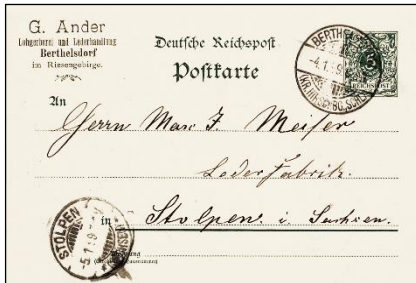 G. Ander
Lohgerberei und Lederhandlung
Berthelsdorf
im Riesengebirge.
Deutsche Reichspost
Postkarte
BERTHELSDORF
-4.1.9
(KR. HIRSCHBG. SCHL.)
5
REICHSPOST
An
Herrn Max J. Meiser
Lederfabrik
in Stolpen i. Sachsen.
STOLPEN
5.1.9